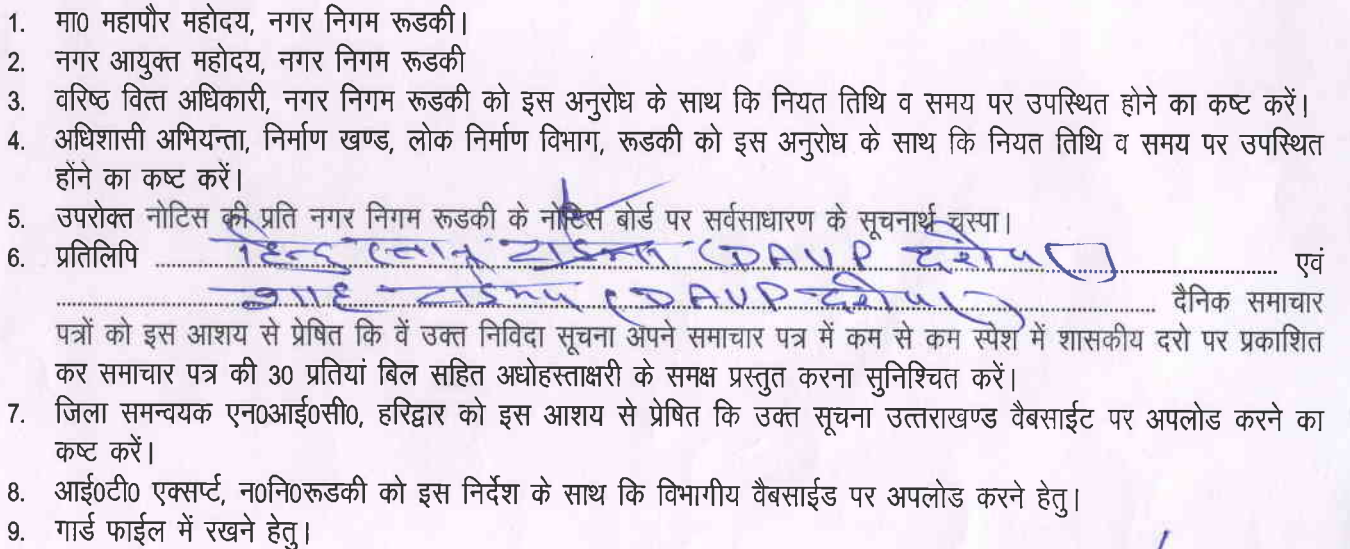 1. मा0 महापौर महोदय, नगर निगम रूडकी।
2. नगर आयुक्त महोदय, नगर निगम रूडकी
3. वरिष्ठ वित्त अधिकारी, नगर निगम रूडकी को इस अनुरोध के साथ कि नियत तिथि व समय पर उपस्थित होने का कष्ट करें।
4. अधिशासी अभियन्ता, निर्माण खण्ड, लोक निर्माण विभाग, रूडकी को इस अनुरोध के साथ कि नियत तिथि व समय पर उपस्थित
होंने का कष्ट करें।
5. उपरोक्त नोटिस की प्रति नगर निगम रूडकी के नोटिस बोर्ड पर सर्वसाधारण के सूचनार्थ चस्पा।
6. प्रतिलिपि हिन्दुस्तान टाईम्स (DAVP दरों पर) एवं
शाह टाईम्स (DAVP दरों पर) दैनिक समाचार
पत्रों को इस आशय से प्रेषित कि वें उक्त निविदा सूचना अपने समाचार पत्र में कम से कम स्पेश में शासकीय दरो पर प्रकाशित
कर समाचार पत्र की 30 प्रतियां बिल सहित अधोहस्ताक्षरी के समक्ष प्रस्तुत करना सुनिश्चित करें।
7. जिला समन्वयक एन0आई0सी0, हरिद्वार को इस आशय से प्रेषित कि उक्त सूचना उत्तराखण्ड वैबसाईट पर अपलोड करने का
कष्ट करें।
8. आई0टी0 एक्सर्प्ट, न0नि0रूडकी को इस निर्देश के साथ कि विभागीय वैबसाईड पर अपलोड करने हेतु।
9. गार्ड फाईल में रखने हेतु।